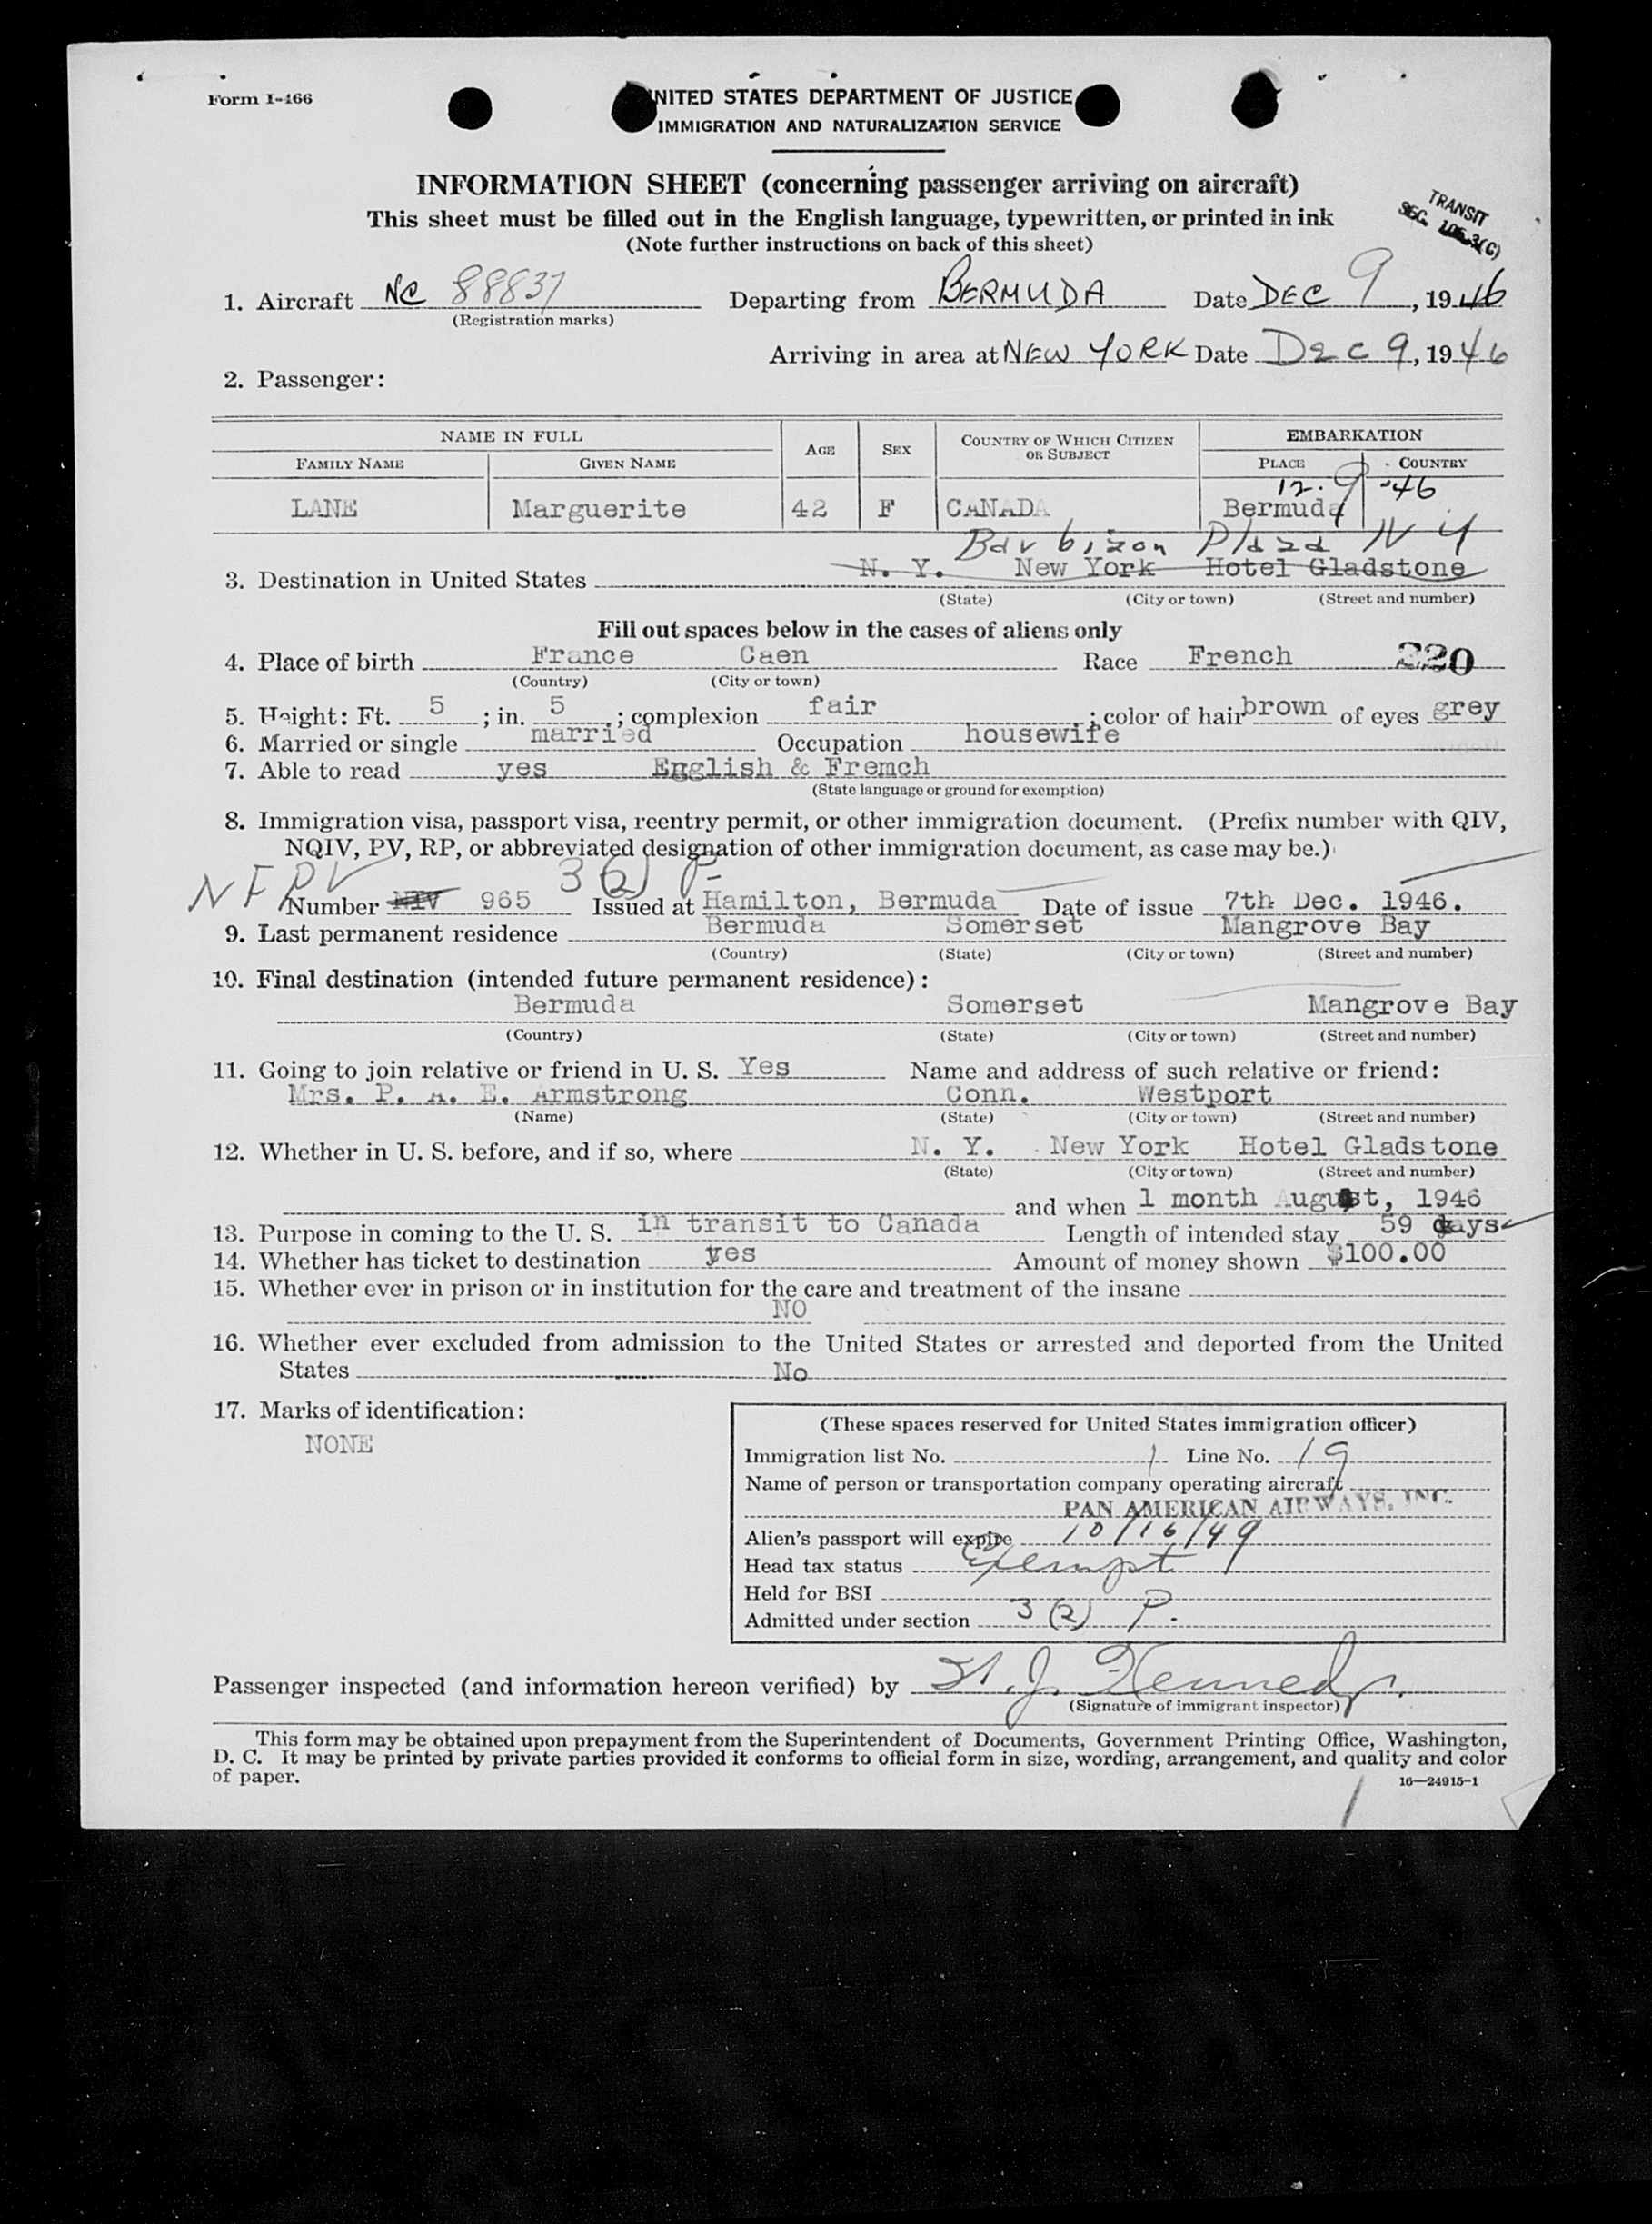 Form I-466
UNITED STATES DEPARTMENT OF JUSTICE
IMMIGRATION AND NATURALIZATION SERVICE
INFORMATION SHEET (concerning passenger arriving on aircraft)
This sheet must be filled out in the English language, typewritten, or printed in ink
(Note further instructions on back of this sheet)
TRANSIT
SEC.
1. Aircraft NC 88837 Departing from BERMUDA Date DEC 9, 1946
(Registration marks)
Arriving in area at NEW YORK Date Dec 9, 1946
2. Passenger:
NAME IN FULL AGE SEX COUNTRY OF WHICH CITIZEN OR SUBJECT EMBARKATION
FAMILY NAME GIVEN NAME PLACE COUNTRY
12-9-46
LANE Marguerite 42 F CANADA Bermuda
Barbizon Plaza N Y
3. Destination in United States N. Y. New York Hotel Gladstone
(State) (City or town) (Street and number)
Fill out spaces below in the cases of aliens only
4. Place of birth France Caen Race French 220
(Country) (City or town)
5. Height: Ft. 5 ; in. 5 ; complexion fair ; color of hair brown of eyes grey
6. Married or single married Occupation housewife
7. Able to read yes English & Fremch
(State language or ground for exemption)
8. Immigration visa, passport visa, reentry permit, or other immigration document. (Prefix number with QIV,
NQIV, PV, RP, or abbreviated designation of other immigration document, as case may be.)
3(2) P-
Number NIV 965 Issued at Hamilton, Bermuda Date of issue 7th Dec. 1946.
9. Last permanent residence Bermuda Somerset Mangrove Bay
(Country) (State) (City or town) (Street and number)
10. Final destination (intended future permanent residence):
Bermuda Somerset Mangrove Bay
(Country) (State) (City or town) (Street and number)
11. Going to join relative or friend in U. S. Yes Name and address of such relative or friend:
Mrs. P. A. E. Armstrong Conn. Westport
(Name) (State) (City or town) (Street and number)
12. Whether in U. S. before, and if so, where N. Y. New York Hotel Gladstone
(State) (City or town) (Street and number)
and when 1 month August, 1946
13. Purpose in coming to the U. S. in transit to Canada Length of intended stay 59 days
14. Whether has ticket to destination yes Amount of money shown $100.00
15. Whether ever in prison or in institution for the care and treatment of the insane
NO
16. Whether ever excluded from admission to the United States or arrested and deported from the United
States No
17. Marks of identification:
NONE
(These spaces reserved for United States immigration officer)
Immigration list No. 1 Line No. 19
Name of person or transportation company operating aircraft
PAN AMERICAN AIRWAYS, INC.
Alien's passport will expire 10/16/49
Head tax status Exempt
Held for BSI
Admitted under section 3(2) P.
Passenger inspected (and information hereon verified) by J. Kennedy
(Signature of immigrant inspector)
This form may be obtained upon prepayment from the Superintendent of Documents, Government Printing Office, Washington,
D. C. It may be printed by private parties provided it conforms to official form in size, wording, arrangement, and quality and color
of paper.
16—24915-1